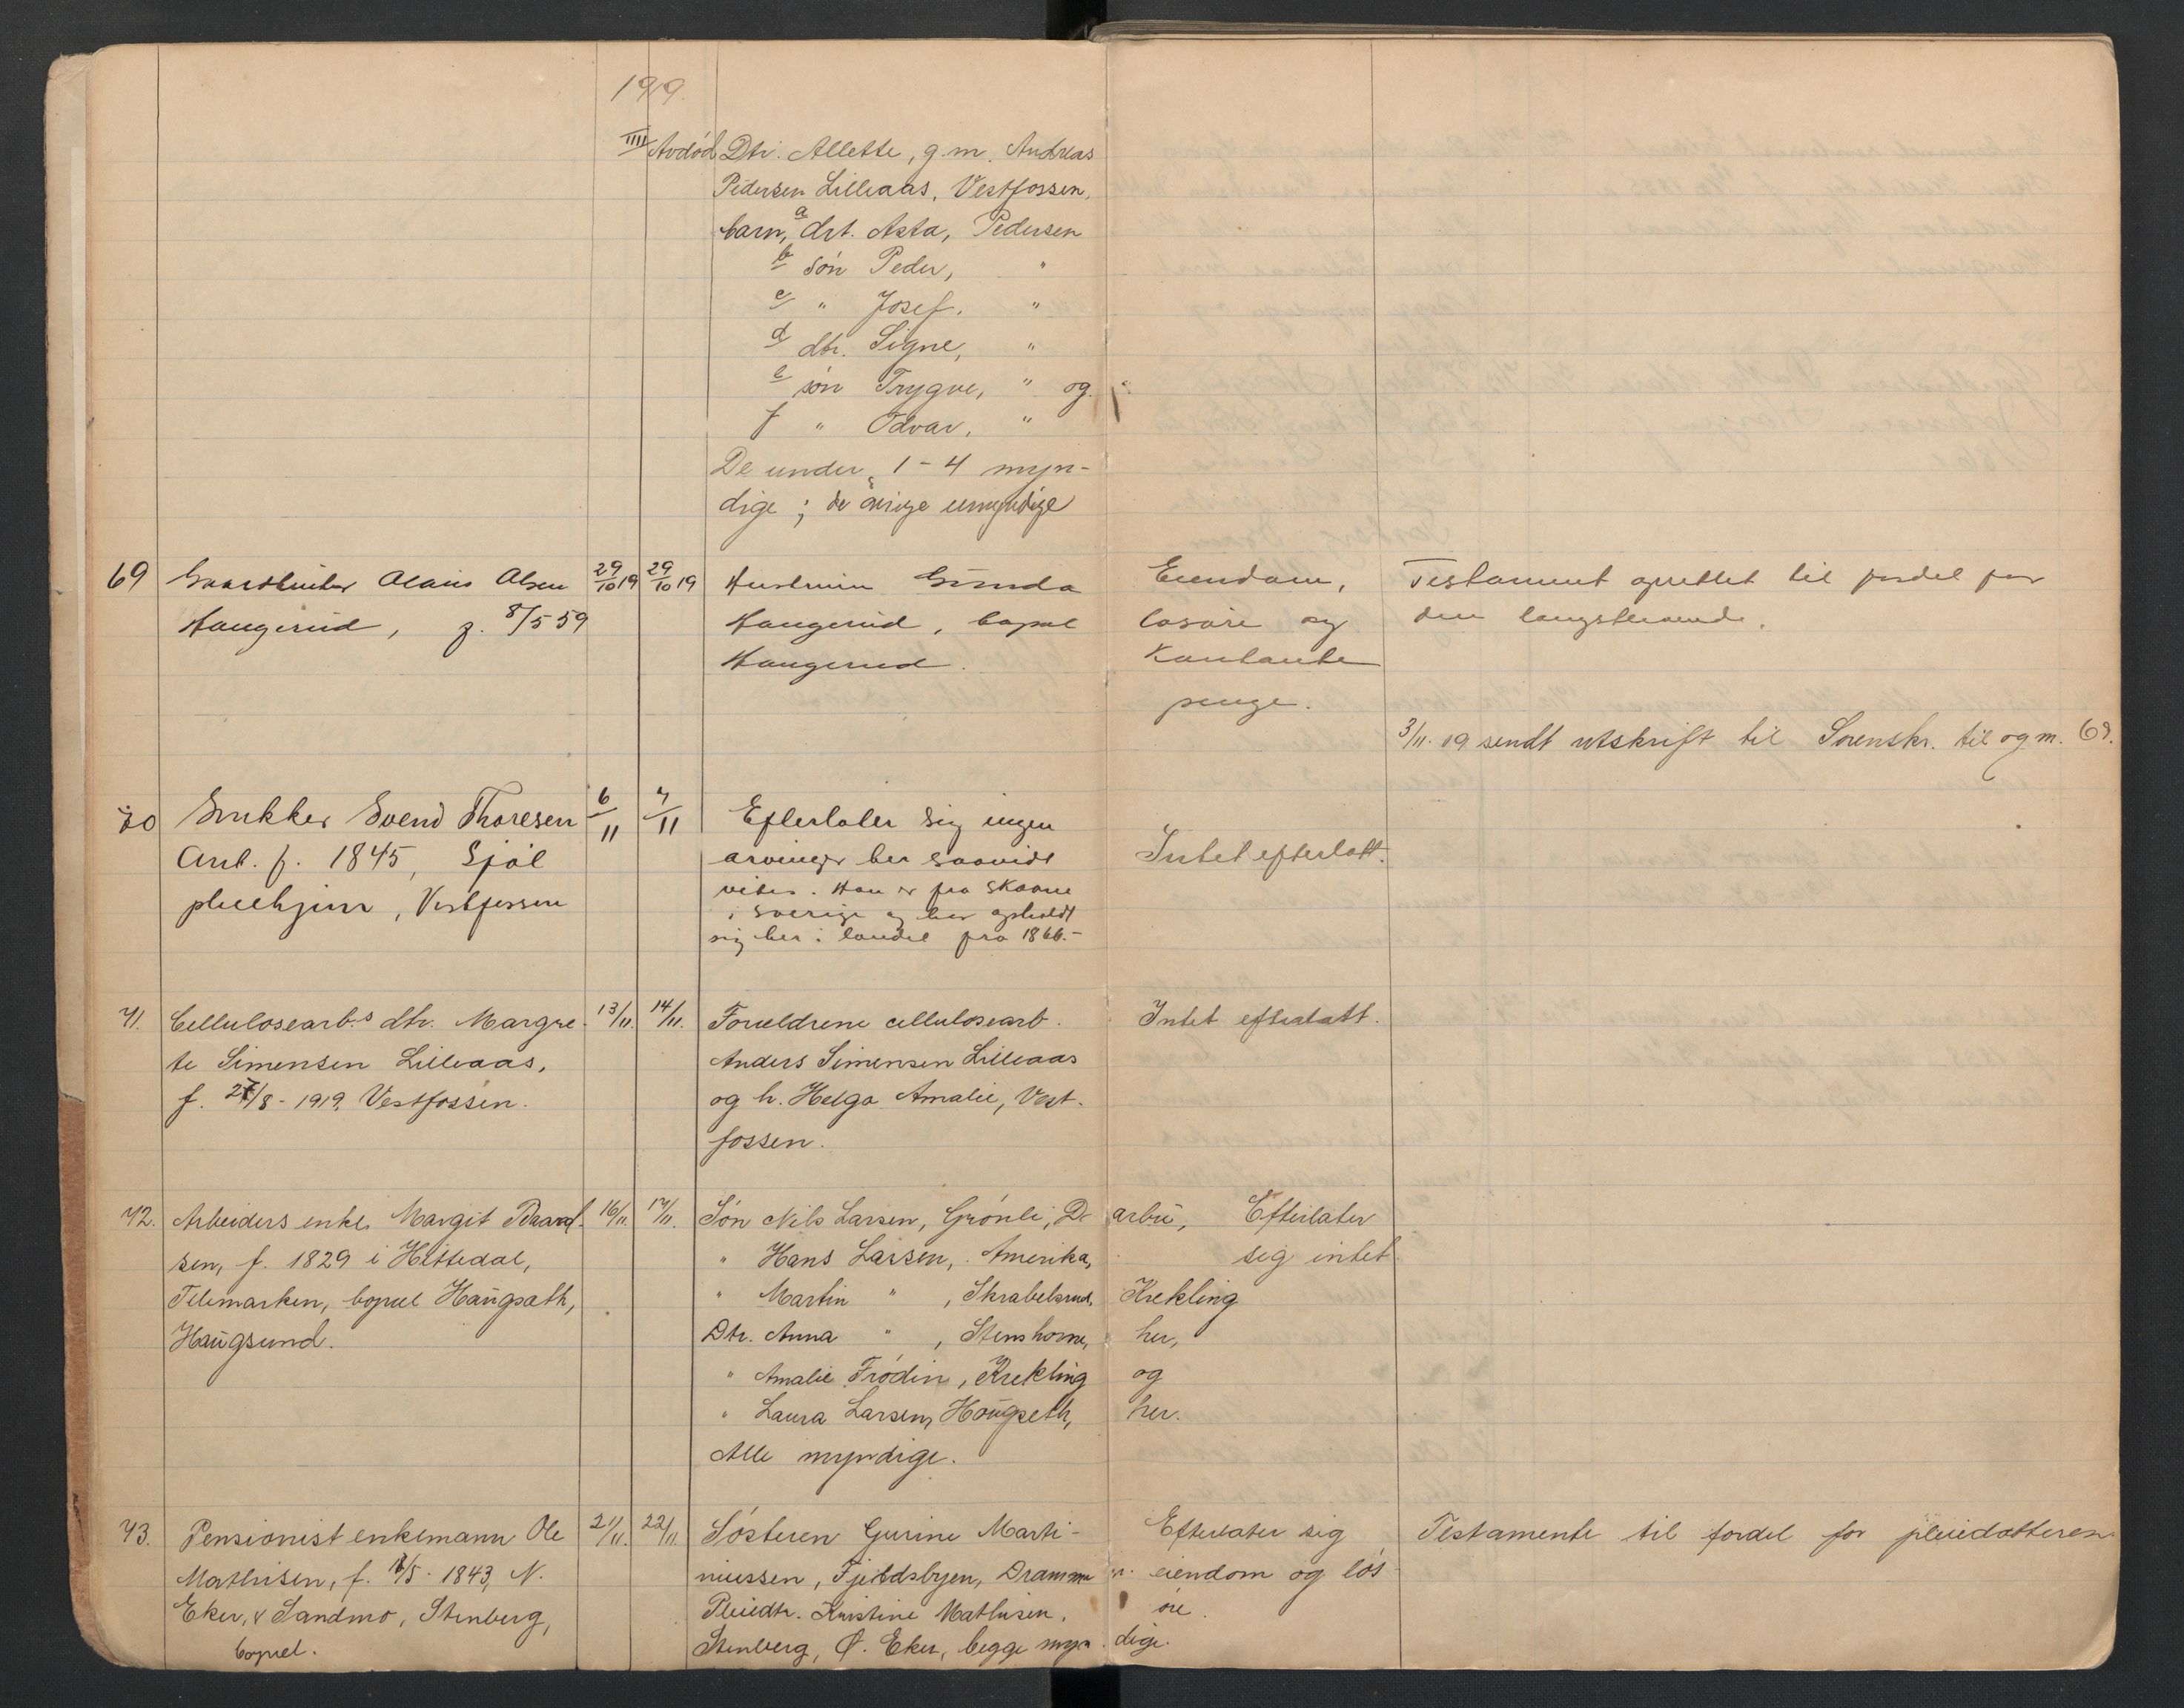 1919.
IIII Avdød Dtr. Allette, g.m. Andreas
Pedersen Lilleaas, Vestfossen,
barn, a drt. Asta, Pedersen
b søn Peder, "
c " Josef. "
d dtr. Signe, "
e søn Trygve, " og
f " Odvar. "
De under 1-4 myn-
dige; de øvrige umyndige
69 Gaardbruker Olaus Olsen 29/10 19 29/10 19 Hustruen Gunda Eiendom, Testament oprettet til fordel for
Haugerud, f. 8/5 59 Haugerud, bopæl løsøre og den længstlevende.
Haugerud. Kontante
penge.
3/11. 19 sendt utskrift til Sorenskr. til og m. 69.
70 Snekker Svend Thoresen 6/11 7/11 Efterlater sig ingen Intet efterlatt.
Anb. f. 1845, Sjøl arvinger her saavidt
pleiehjem, Vestfossen vites. Han er fra Skaane
i Sverige og har opholdt
sig her i landet fra 1866.-
71. Cellulosearb.s dtr. Margre- 13/11. 14/11. Forældrene cellulosearb. Intet efterlatt.
te Simensen Lilleaas, Anders Simensen Lilleaas
f. 27/8 - 1919, Vestfossen. og h. Helga Amalie, Vest-
fossen.
72. Arbeiders enke Margit Baard- 16/11. 17/11. Søn Nils Larsen, Grønli, Darbu, Efterlater
sen, f. 1829 i Hittedal, " Hans Larsen, Amerika, sig intet.
Telemarken, bopæl Haugsath, " Martin " , Skrabelsrud, Krekling
Haugsund. Dtr. Anna " , Stenshorne, her,
" Amalie Frødin, Krekling og
" Laura Larsen, Haugseth, her.
Alle myndige.
73. Pensionist enkemann Ole 21/11. 22/11. Søsteren Gurine Marti- Efterlater sig Testamente til fordel for pleiedatteren
Mathisen, f. /5 - 1843, N. niussen, Fjeldsbyen, Drammen. eiendom og løs
Eker, Sandmo, Stenberg, Pleiedtr. Kristine Mathisen, øre.
bopæl. Stenberg, Ø. Eker, begge myndige.